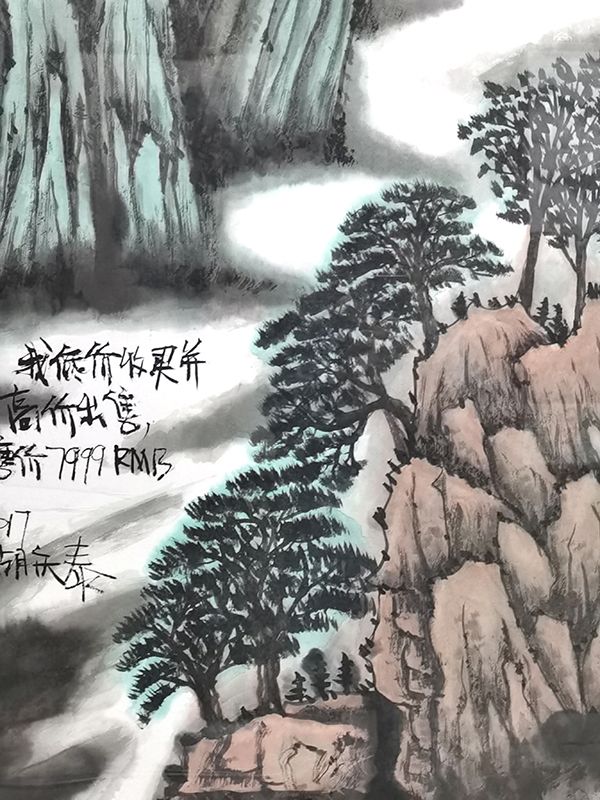 我低价收买并
高价出售,
售价7999 RMB
017
胡庆泰